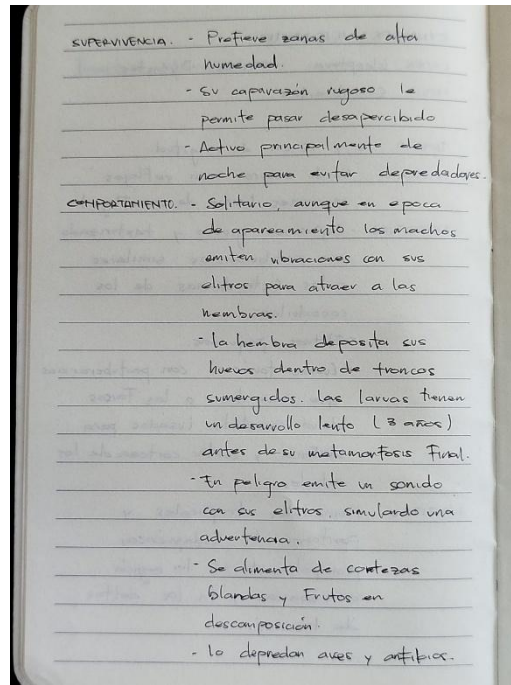 SUPERVIVENCIA. - Prefieve zonas de alta
humedad.
- Su caparazón rugoso le
permite pasar desapercibido
- Activo principalmente de
noche para evitar depredadores.
COMPORTAMIENTO. - Solitario, aunque en epoca
de apareamiento los machos
emiten vibraciones con sus
elitros para atraer a las
hembras.
- la hembra deposita sus
huevos dentro de troncos
sumergidos. las larvas tienen
un desarrollo lento (3 años)
antes de su metamorfosis Final.
- En peligro emite un sonido
con sus elitros, simulando una
advertencia.
- Se alimenta de cortezas
blandas y Frutos en
descomposición.
- lo depredan aves y anfibios.